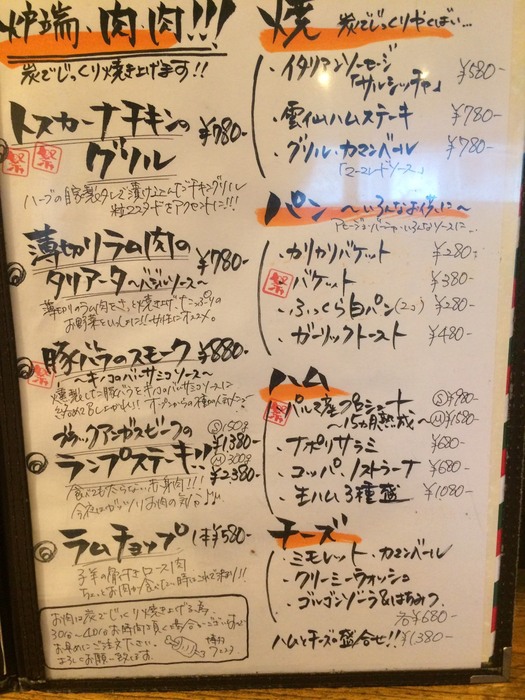 炉端、肉、肉!!!
炭でじっくり焼き上げます!!
トスカーナチキンの
グリル ¥780-
ハーブの自家製タレで漬け込んだチキングリル
粒マスタードをアクセントに!!!
薄切りラム肉の
タリアータ〜バジルソース〜 ¥780-
薄切りのラム肉をさっと焼き上げ、たっぷりの
お野菜といっしょに!!
豚バラのスモーク ¥880-
〜キノコのバルサミコソース〜
燻製した豚バラをキノコバルサミコソースに
ブラックアンガスビーフの Ⓢ150g
¥1380-
ランプステーキ!! Ⓜ300g
¥2380-
食べても太らない赤身肉!!!
今夜はガッツリお肉の気分♪
ラムチョップ 1本¥580-
子羊の骨付きロース肉
ちょっとお肉が食べたい時はこれで決まり!!
お肉は炭でじっくり焼き上げる為、
30分〜40分お時間を頂く場合がございます
お早めにご注文下さい。
よろしくお願い致します。
焼 炭でじっくりやくばい…
・イタリアンソーセージ
「サルシッチャ」 ¥580-
・雲仙ハムステーキ ¥780-
・グリル・カマンベール ¥780-
パン 〜いろんなお供に〜
アヒージョ・バーニャ・いろんなソースに…
・カリカリバケット ¥280-
・バケット ¥380-
・ふっくら白パン(2コ) ¥280-
・ガーリックトースト ¥480-
ハム
・パルマ産プロシュート Ⓢ¥980-
〜15カ月熟成〜 Ⓜ¥1580-
・ナポリサラミ ¥680-
・コッパ・ノストラーナ ¥680-
・生ハム3種盛 ¥1080-
チーズ
・ミモレット・カマンベール
・クリーミーウォッシュ
・ゴルゴンゾーラ&はちみつ
各¥680-
ハムとチーズの盛合せ!! ¥1380-